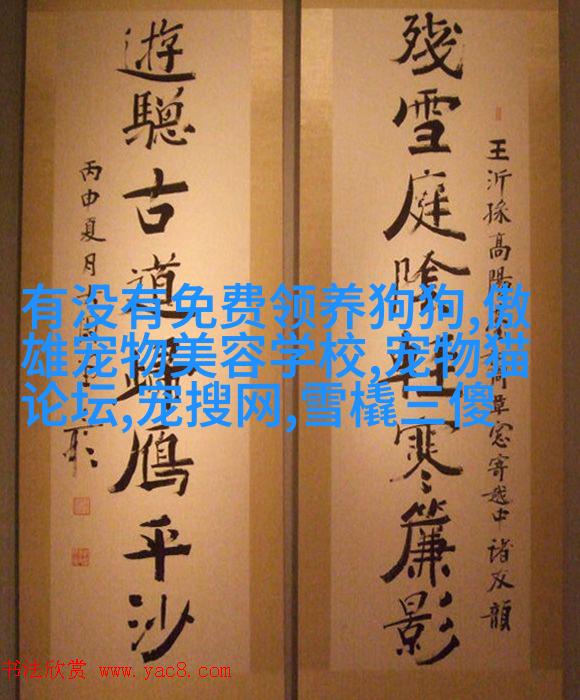 王沂孫高陽臺和周草窓寄越中諸友韻
殘雪庭陰輕寒簾影
遊驄古道歸鴈平沙
丙申夏月
有没有免费领养狗狗,傲
雄宠物美容学校,宠物猫
论坛,宠搜网,雪橇三傻
书法欣赏 www.yac8.com